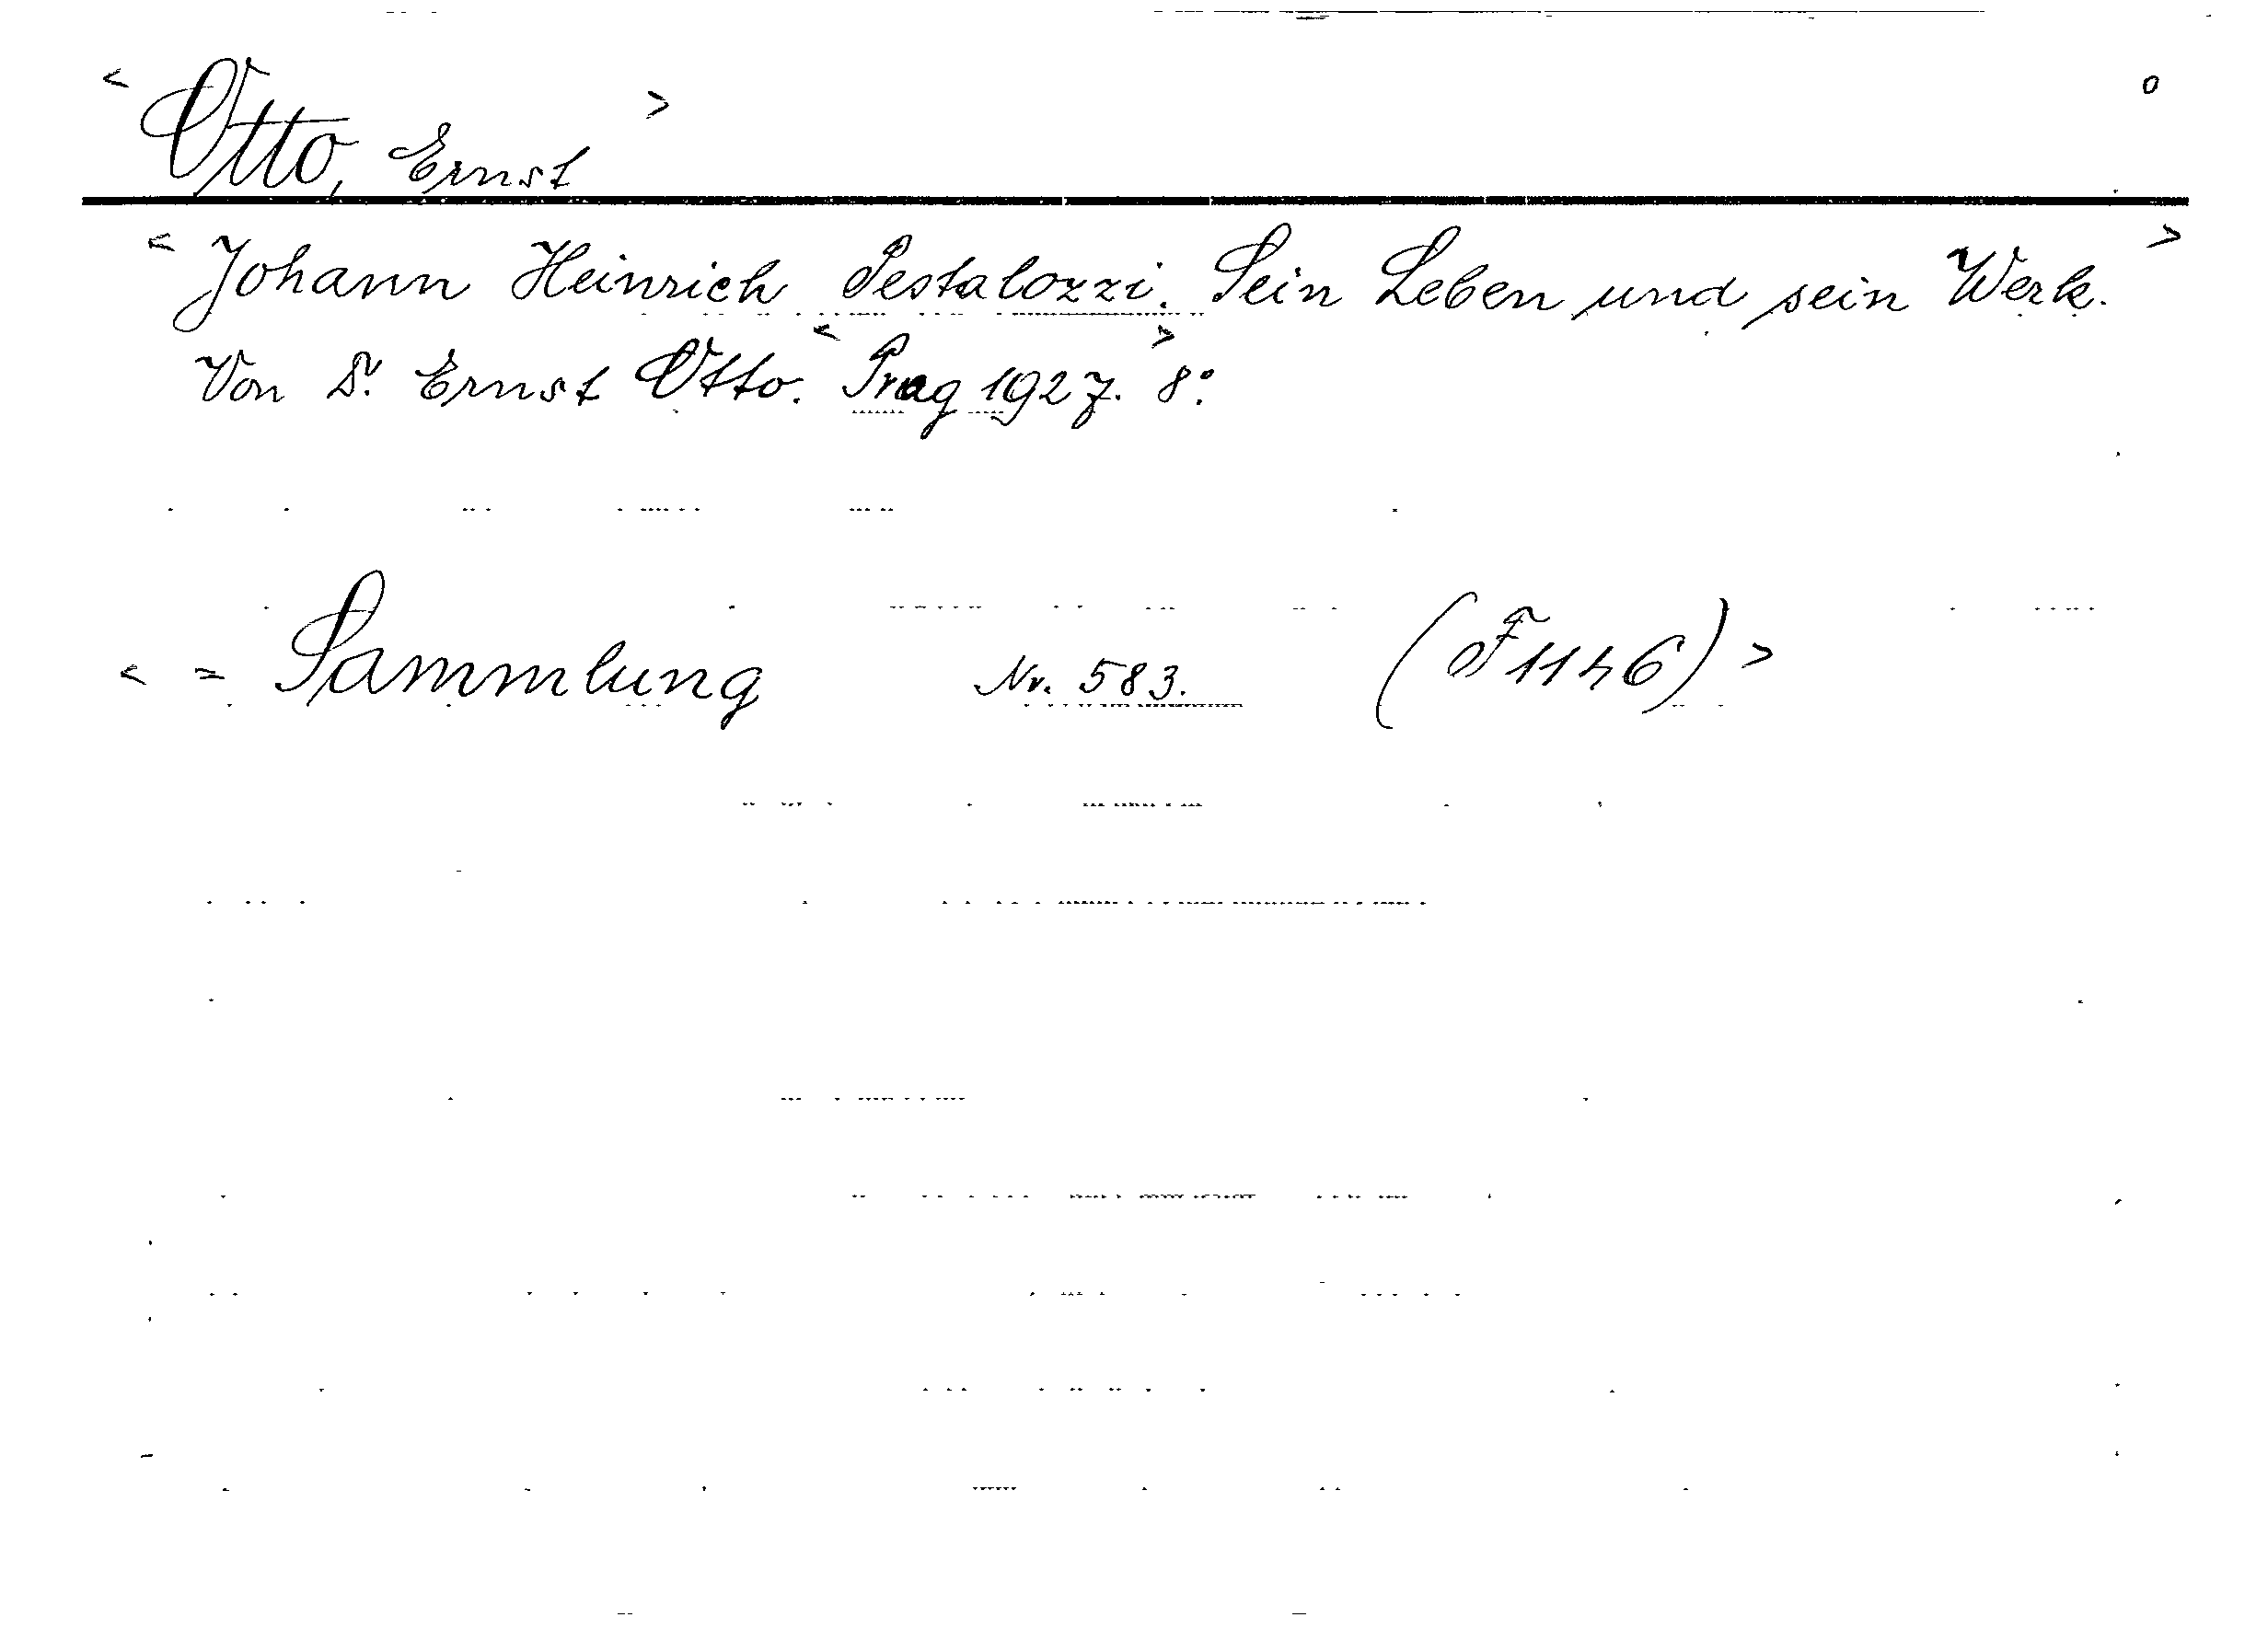 < Otto, Ernst > o
< Johann Heinrich Pestalozzi. Sein Leben und sein Werk. >
Von Dr. Ernst Otto. < Prag 1927. > 8°.
< = Sammlung Nr. 583. (F 1146) >